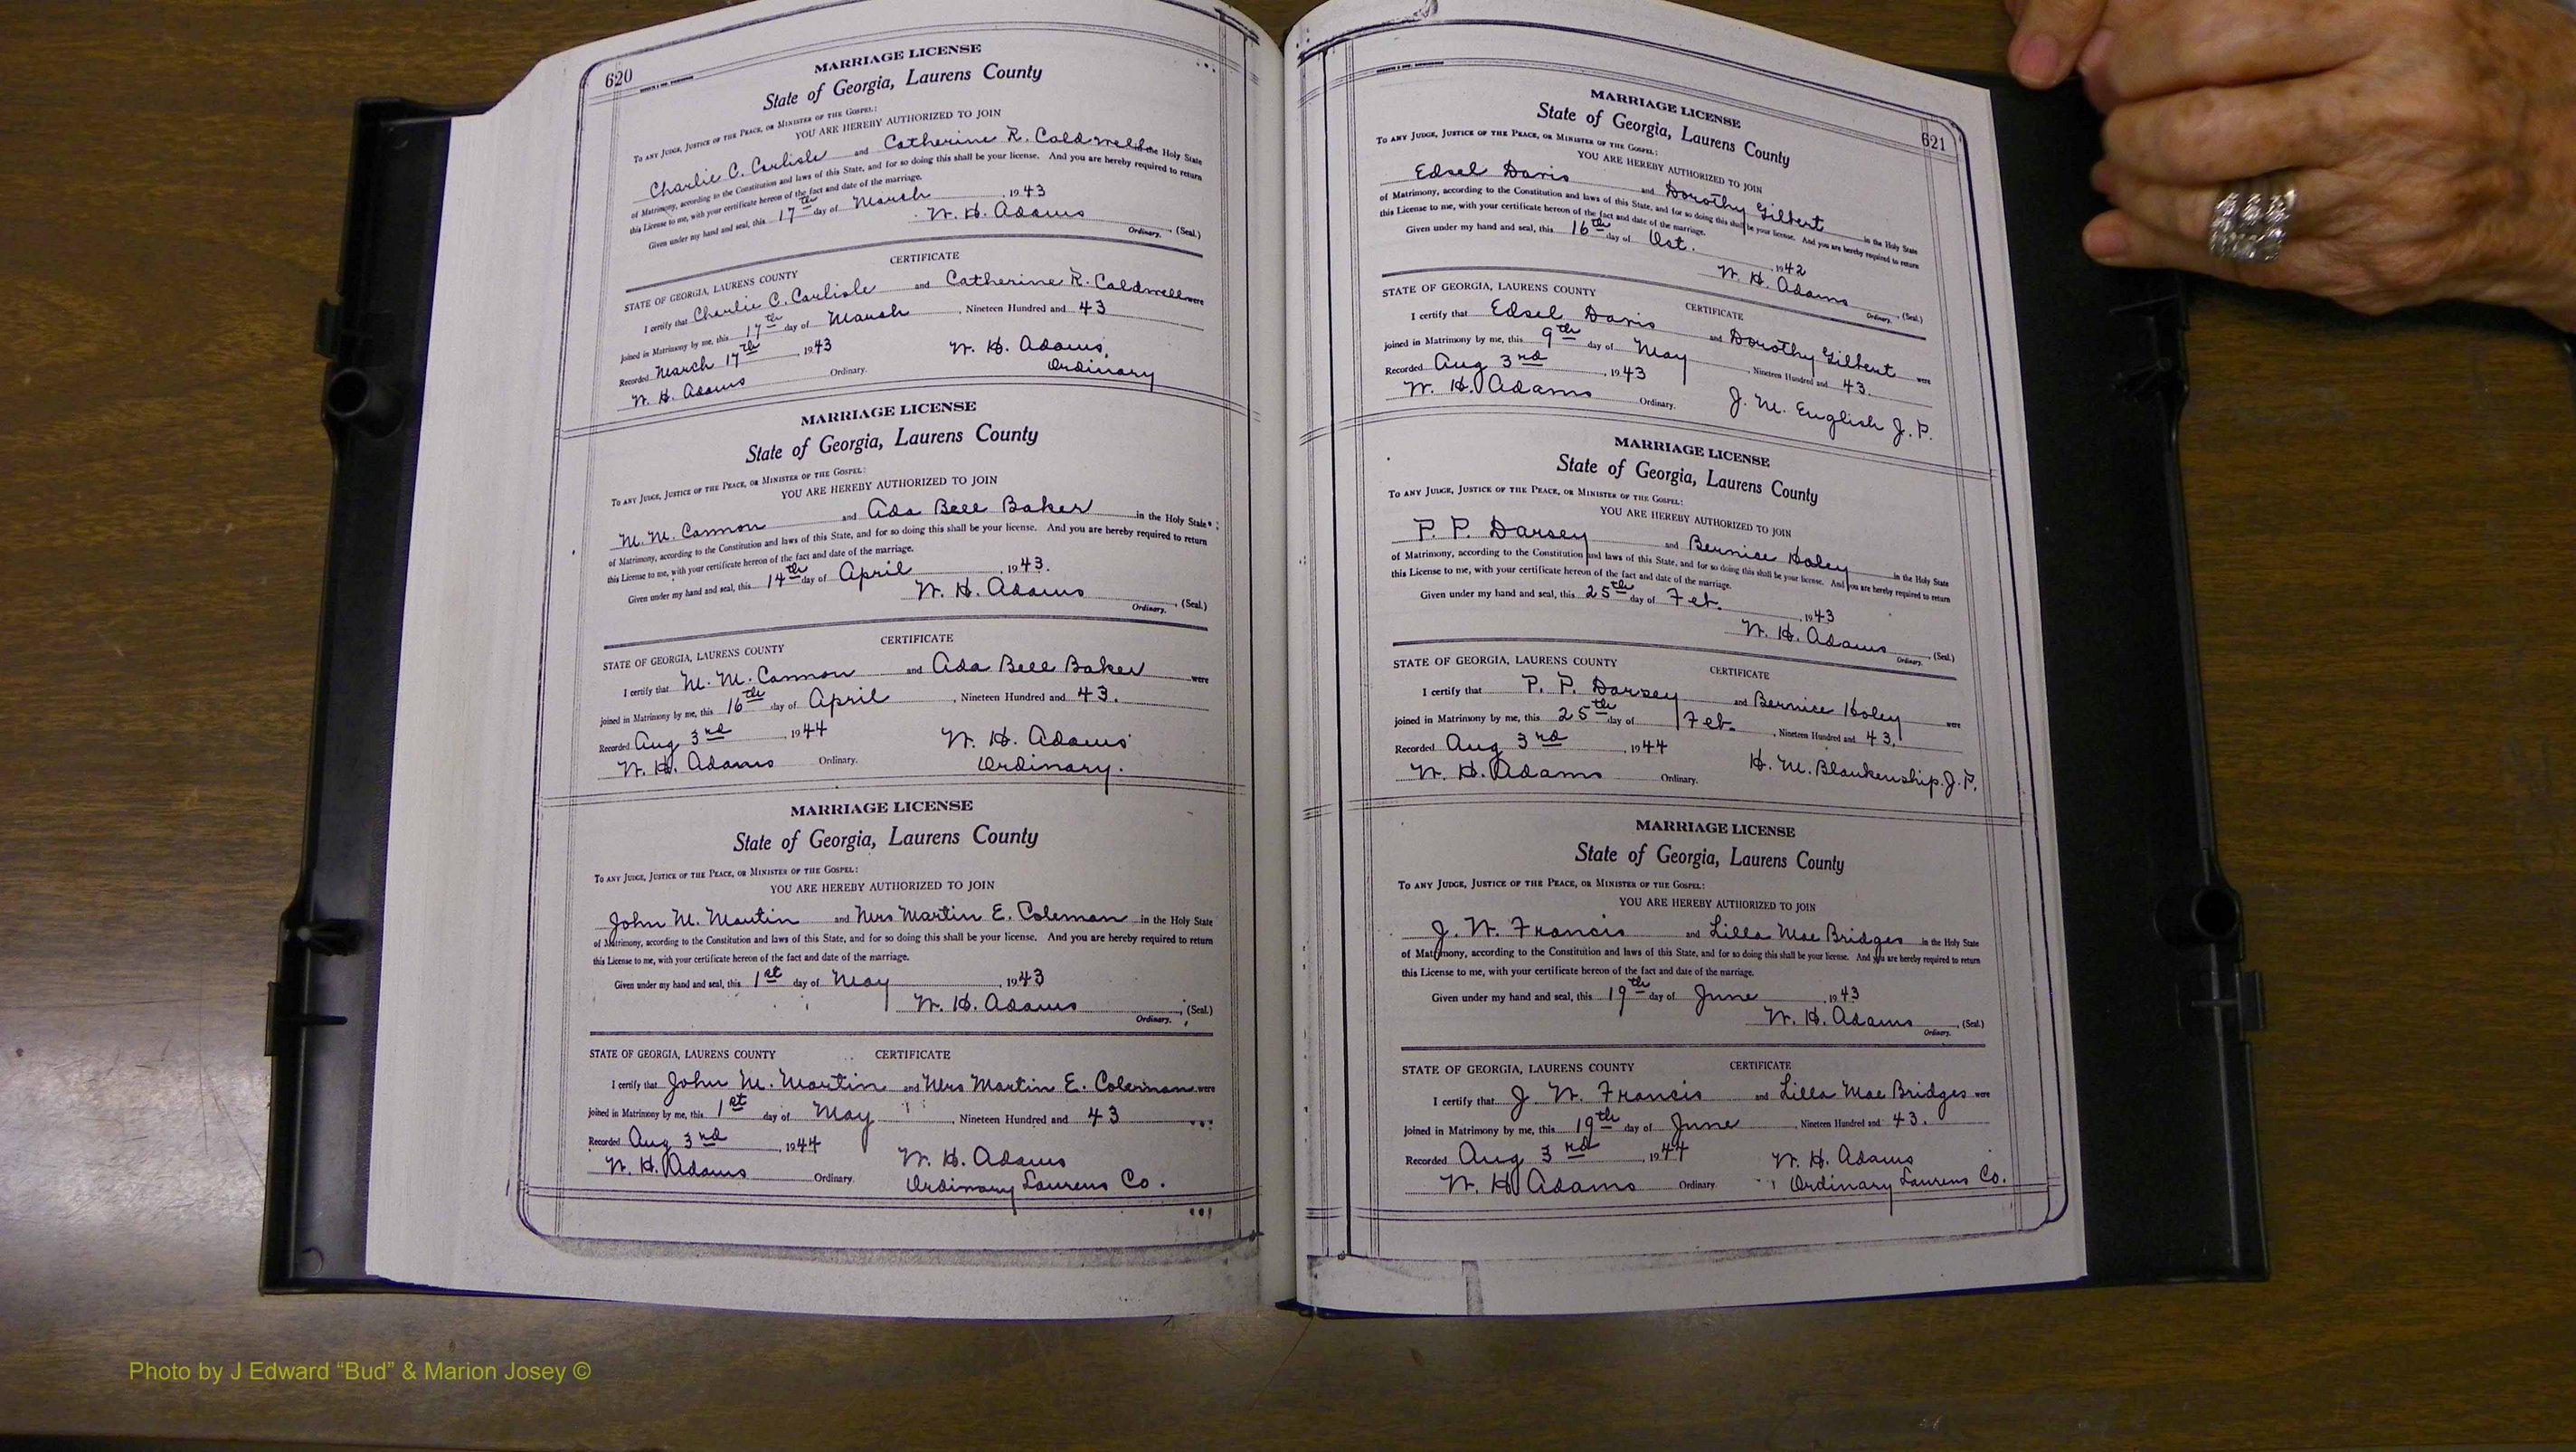 620
MARRIAGE LICENSE
State of Georgia, Laurens County
TO ANY JUDGE, JUSTICE OF THE PEACE, OR MINISTER OF THE GOSPEL:
YOU ARE HEREBY AUTHORIZED TO JOIN
Charlie C. Carlisle and Catherine R. Caldwell in the Holy State
of Matrimony, according to the Constitution and laws of this State, and for so doing this shall be your license. And you are hereby required to return
this License to me, with your certificate hereon of the fact and date of the marriage.
Given under my hand and seal, this 17th day of March, 1943
W. H. Adams (Seal.)
Ordinary.
CERTIFICATE
STATE OF GEORGIA, LAURENS COUNTY
I certify that Charlie C. Carlisle and Catherine R. Caldwell were
joined in Matrimony by me, this 17th day of March, Nineteen Hundred and 43
Recorded March 17th, 1943 W. H. Adams,
W. H. Adams Ordinary. Ordinary
MARRIAGE LICENSE
State of Georgia, Laurens County
TO ANY JUDGE, JUSTICE OF THE PEACE, OR MINISTER OF THE GOSPEL:
YOU ARE HEREBY AUTHORIZED TO JOIN
M. M. Cannon and Ada Bell Baker in the Holy State
of Matrimony, according to the Constitution and laws of this State, and for so doing this shall be your license. And you are hereby required to return
this License to me, with your certificate hereon of the fact and date of the marriage.
Given under my hand and seal, this 14th day of April, 1943.
W. H. Adams (Seal.)
Ordinary.
CERTIFICATE
STATE OF GEORGIA, LAURENS COUNTY
I certify that M. M. Cannon and Ada Bell Baker were
joined in Matrimony by me, this 16th day of April, Nineteen Hundred and 43.
Recorded Aug 3rd, 1944 W. H. Adams
W. H. Adams Ordinary. Ordinary.
MARRIAGE LICENSE
State of Georgia, Laurens County
TO ANY JUDGE, JUSTICE OF THE PEACE, OR MINISTER OF THE GOSPEL:
YOU ARE HEREBY AUTHORIZED TO JOIN
John M. Martin and Mrs Martin E. Coleman in the Holy State
of Matrimony, according to the Constitution and laws of this State, and for so doing this shall be your license. And you are hereby required to return
this License to me, with your certificate hereon of the fact and date of the marriage.
Given under my hand and seal, this 1st day of May, 1943
W. H. Adams (Seal.)
Ordinary.
STATE OF GEORGIA, LAURENS COUNTY CERTIFICATE
I certify that John M. Martin and Mrs Martin E. Coleman were
joined in Matrimony by me, this 1st day of May, Nineteen Hundred and 43
Recorded Aug 3rd, 1944 W. H. Adams
W. H. Adams Ordinary. Ordinary Laurens Co.
621
MARRIAGE LICENSE
State of Georgia, Laurens County
TO ANY JUDGE, JUSTICE OF THE PEACE, OR MINISTER OF THE GOSPEL:
YOU ARE HEREBY AUTHORIZED TO JOIN
Edsel Davis and Dorothy Gilbert in the Holy State
of Matrimony, according to the Constitution and laws of this State, and for so doing this shall be your license. And you are hereby required to return
this License to me, with your certificate hereon of the fact and date of the marriage.
Given under my hand and seal, this 16th day of Oct., 1942
W. H. Adams (Seal.)
Ordinary.
CERTIFICATE
STATE OF GEORGIA, LAURENS COUNTY
I certify that Edsel Davis and Dorothy Gilbert were
joined in Matrimony by me, this 9th day of May, Nineteen Hundred and 43.
Recorded Aug 3rd, 1943
W. H. Adams Ordinary. J. M. English J. P.
MARRIAGE LICENSE
State of Georgia, Laurens County
TO ANY JUDGE, JUSTICE OF THE PEACE, OR MINISTER OF THE GOSPEL:
YOU ARE HEREBY AUTHORIZED TO JOIN
P. P. Darsey and Bernice Holey in the Holy State
of Matrimony, according to the Constitution and laws of this State, and for so doing this shall be your license. And you are hereby required to return
this License to me, with your certificate hereon of the fact and date of the marriage.
Given under my hand and seal, this 25th day of Feb., 1943
W. H. Adams (Seal.)
Ordinary.
CERTIFICATE
STATE OF GEORGIA, LAURENS COUNTY
I certify that P. P. Darsey and Bernice Holey were
joined in Matrimony by me, this 25th day of Feb., Nineteen Hundred and 43.
Recorded Aug 3rd, 1944
W. H. Adams Ordinary. H. M. Blankenship. J. P.
MARRIAGE LICENSE
State of Georgia, Laurens County
TO ANY JUDGE, JUSTICE OF THE PEACE, OR MINISTER OF THE GOSPEL:
YOU ARE HEREBY AUTHORIZED TO JOIN
J. W. Francis and Lilla Mae Bridges in the Holy State
of Matrimony, according to the Constitution and laws of this State, and for so doing this shall be your license. And you are hereby required to return
this License to me, with your certificate hereon of the fact and date of the marriage.
Given under my hand and seal, this 19th day of June, 1943
W. H. Adams (Seal.)
Ordinary.
STATE OF GEORGIA, LAURENS COUNTY CERTIFICATE
I certify that J. W. Francis and Lilla Mae Bridges were
joined in Matrimony by me, this 19th day of June, Nineteen Hundred and 43.
Recorded Aug 3rd, 1944 W. H. Adams
W. H. Adams Ordinary. Ordinary Laurens Co.
Photo by J Edward “Bud” & Marion Josey ©